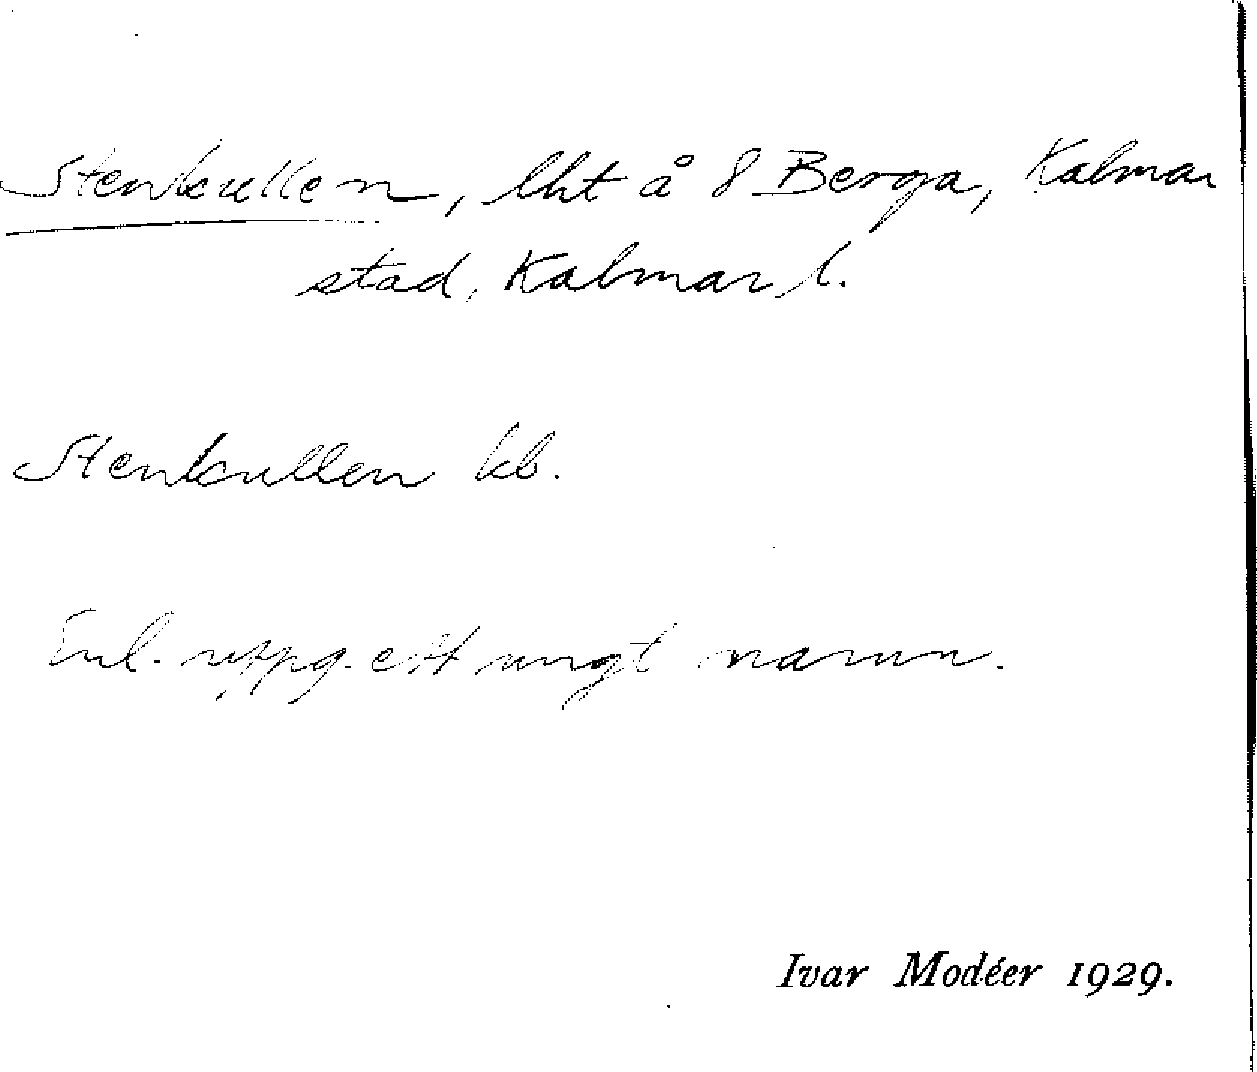 Stenkullen, lht å 8 Berga, Kalmar
stad, Kalmar l.
Stenkullen kb.
Enl. uppg. ett ungt namn.
Ivar Modéer 1929.